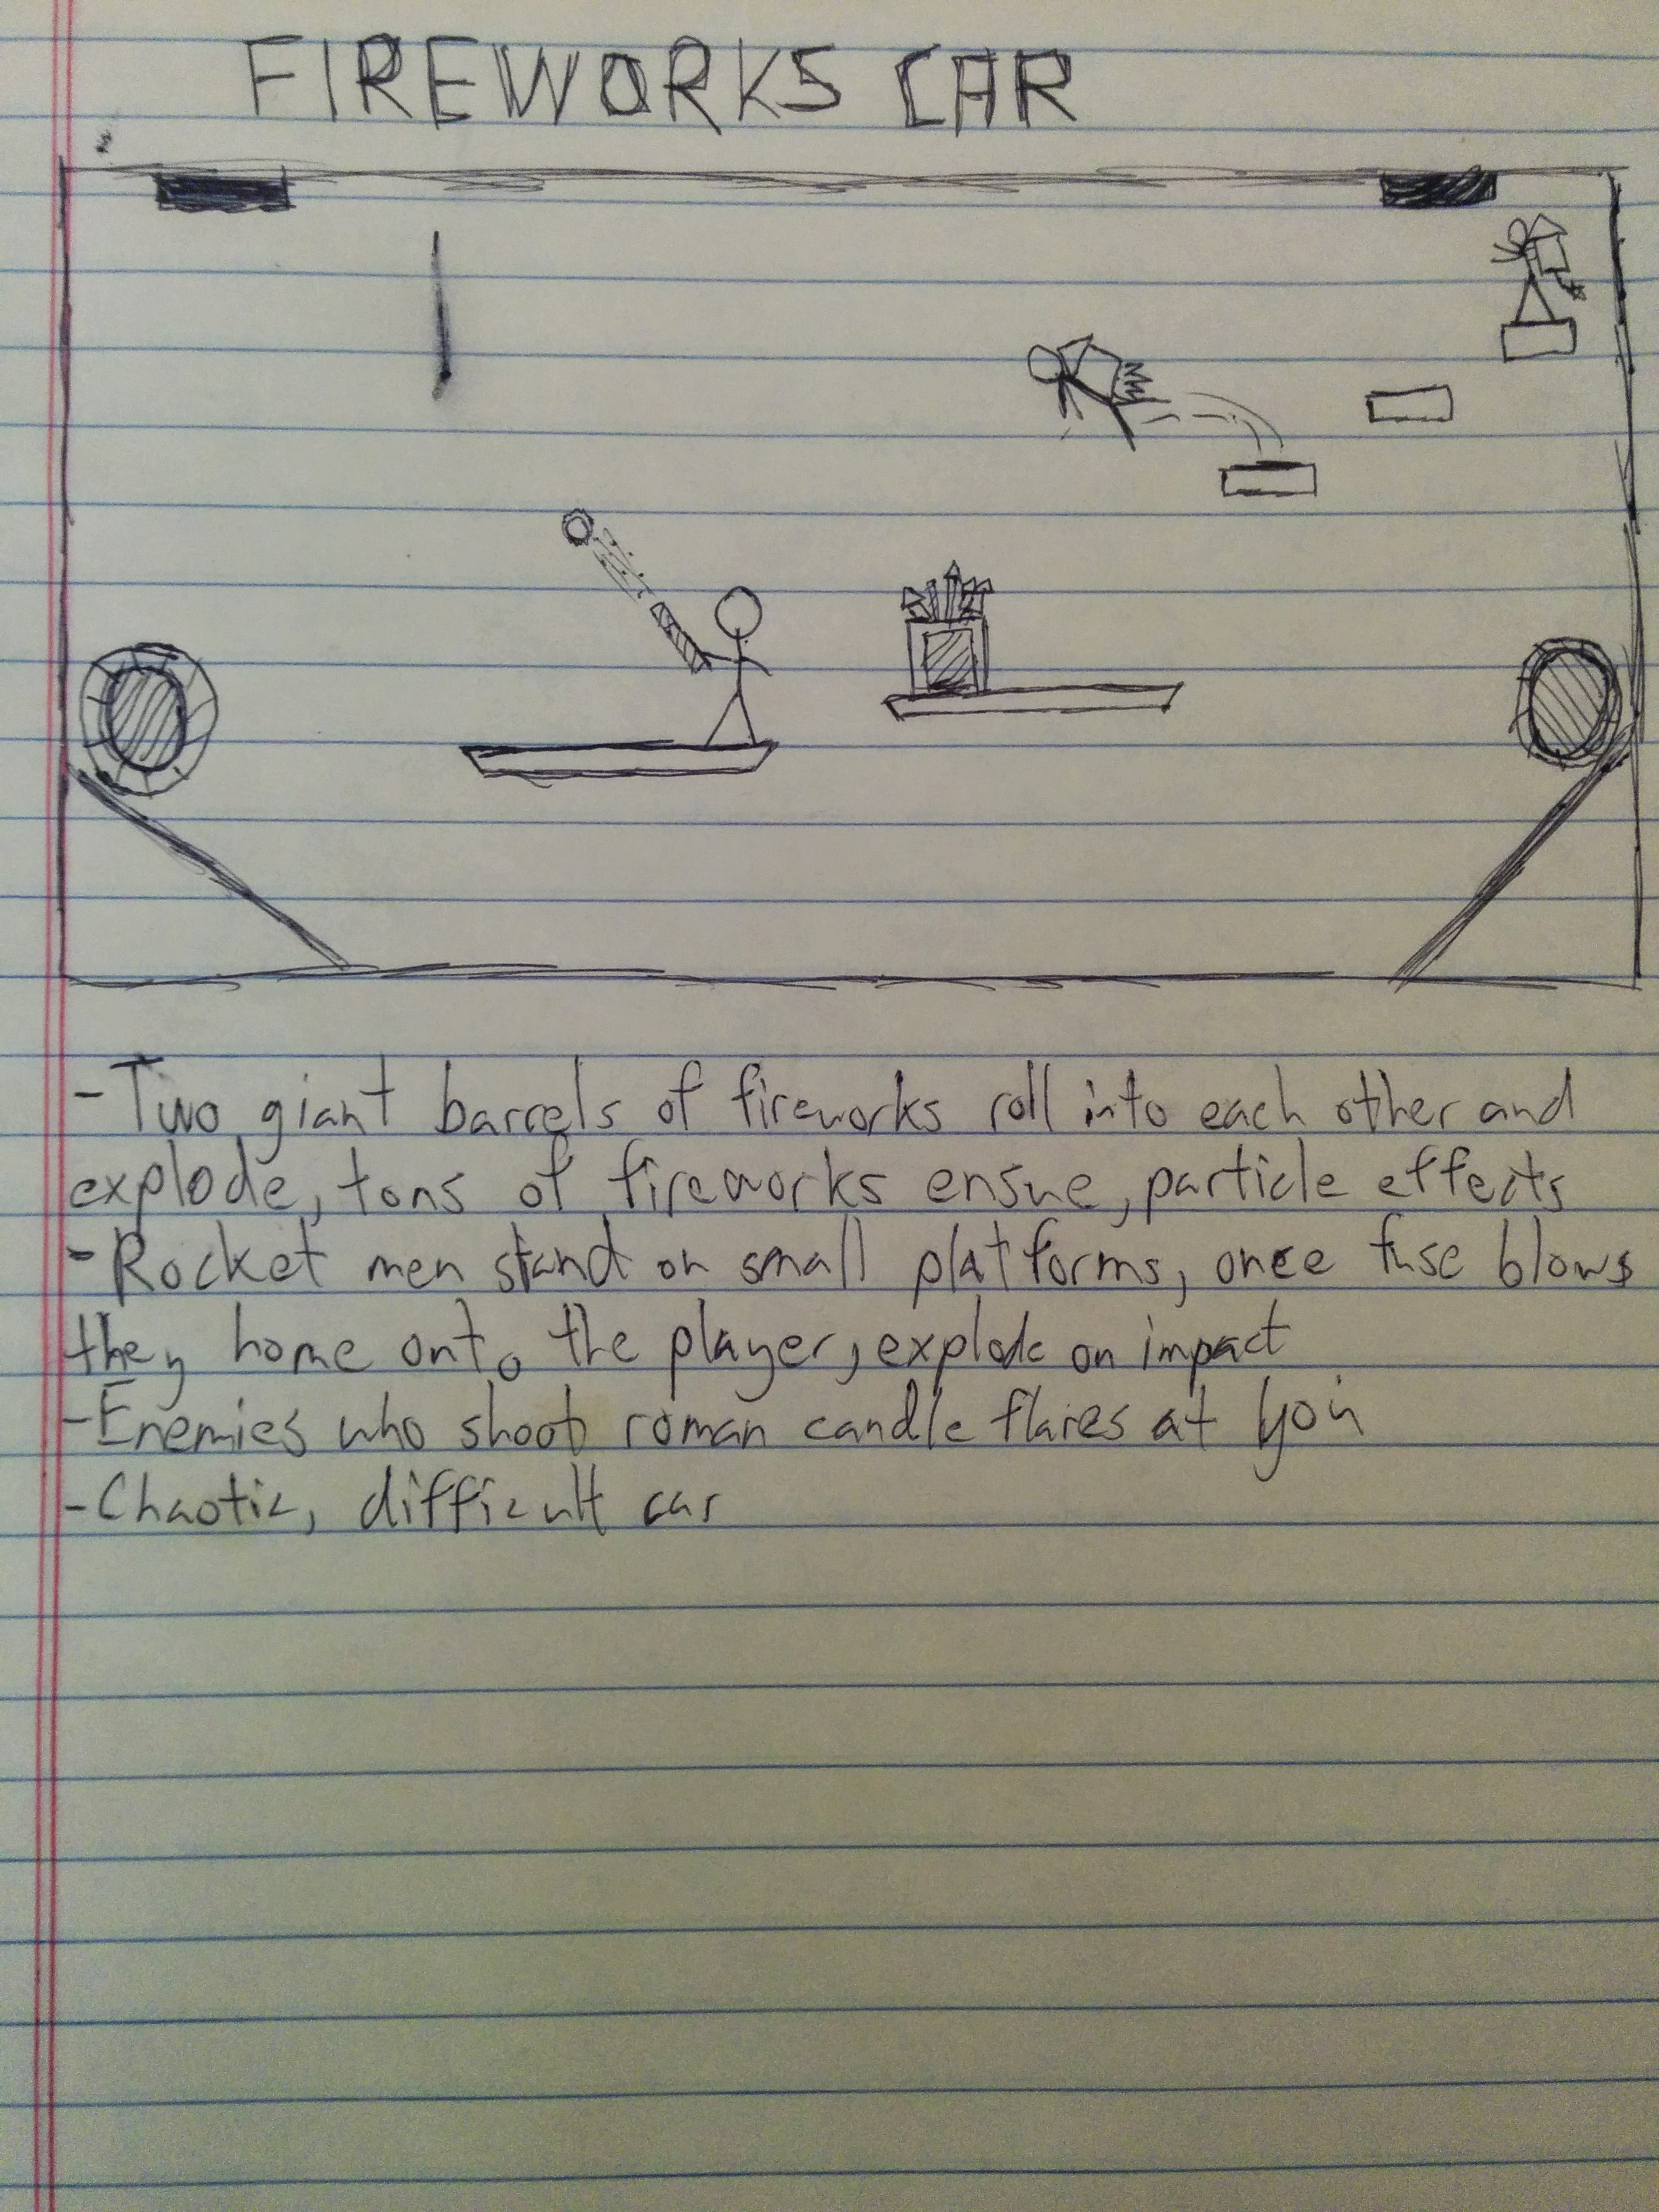 FIREWORKS CAR
- Two giant barrels of fireworks roll into each other and
explode, tons of fireworks ensue, particle effects
- Rocket men stand on small platforms, once fuse blows
they home onto the player, explode on impact
- Enemies who shoot roman candle flares at you
- Chaotic, difficult car